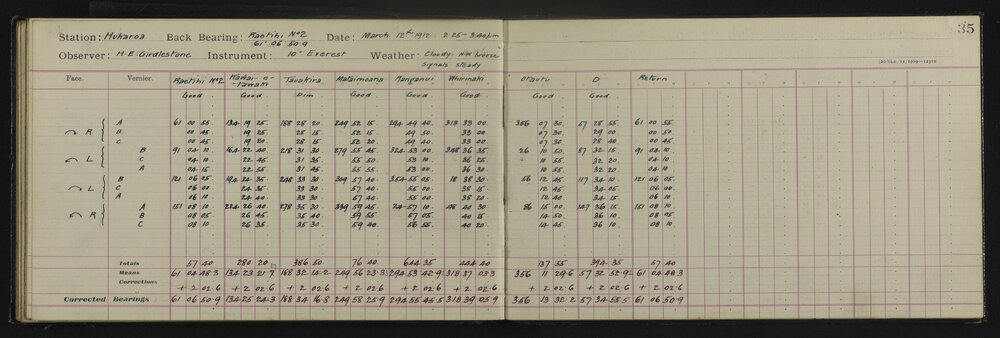 35
Station: Mukaroa Back Bearing: Raetihi Nº2 61° 06 50.9 Date: March 12th 1912 2.25-3.40pm
Observer: H E Girdlestone Instrument: 10" Everest Weather: Cloudy. N.W breeze
Signals steady
Face. Vernier. Raetihi Nº2 Tauakira Mataimoana Ranganui Whirinaki D Return
Good Good Dim. Good Good Good Good Good
R A 61 00 55. 134 19 25. 188 28 20. 249 52 15. 294 49 40. 313 33 00. 356 07 30. 57 28 55. 61 00 55.
B 00 45. 19 25. 28 15. 52 20. 49 50. 33 00. 07 30. 29 00 00 50.
C 00 45. 19 20. 28 15. 52 20. 49 40. 33 00. 07 30. 28 40 00 45.
L B 91 04 10. 164 22 40. 218 31 30. 279 55 45. 324 53 00. 348 36 35. 26 10 50. 87 32 15. 91 04 10.
C 04 10. 22 45. 31 45. 55 50. 53 10. 36 25. 10 55. 32 20. 04 10.
A 04 15. 22 55. 31 35. 55 55. 53 00. 36 30. 10 55. 32 20 04 10.
L B 121 06 25. 194 24 35. 248 33 30. 309 57 40. 354 55 05. 18 38 30. 56 12 45. 117 34 10. 121 06 05.
C 06 00. 24 35. 33 30. 57 40. 55 00. 38 15. 12 45. 34 05. 06 00.
A 06 10. 24 40. 33 30. 57 40. 55 00. 38 20. 12 40. 34 15. 06 10
R A 151 08 10. 224 26 40. 278 35 30. 339 59 45. 24 57 10. 48 40 30. 86 15 00. 147 36 15. 151 08 10.
B 08 05. 26 45. 35 40. 59 55. 57 05. 40 15. 14 50. 36 10. 08 05.
C 08 10. 26 35. 35 30. 59 40. 56 55. 40 20. 14 45. 36 10 08 10.
Totals 57 40 280 20 386 50 76 40 644 35 444 40 137 55 394 35 57 40
Means 61 04 48.3 134 23 21.7 188 32 14.2 249 56 23.3 294 53 42.9 318 37 03.3 356 11 29.6 57 32 52.9 61 04 48.3
Corrections + 2 02.6 + 2 02.6 + 2 02.6 + 2 02.6 + 2 02.6 + 2 02.6 + 2 02.6 + 2 02.6 + 2 02.6
Corrected Bearings 61 06 50.9 134 25 24.3 188 34 16.8 249 58 25.9 294 55 45.5 318 39 05.9 356 13 32.2 57 34 55.5 61 06 50.9